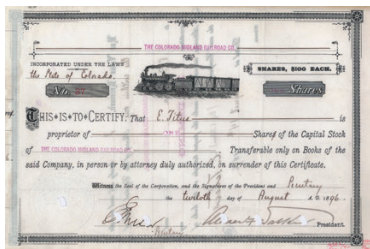 THE COLORADO MIDLAND RAILROAD CO.
INCORPORATED UNDER THE LAWS
the State of Colorado.
SHARES, $100 EACH.
No. 37
Shares
THIS IS TO CERTIFY, That E. Titus is
proprietor of Shares of the Capital Stock
of THE COLORADO MIDLAND RAILROAD CO. Transferable only on Books of the
said Company, in person or by attorney duly authorized, on surrender of this Certificate.
Witness the Seal of the Corporation, and the Signatures of the President and
day of August 1896.
President.